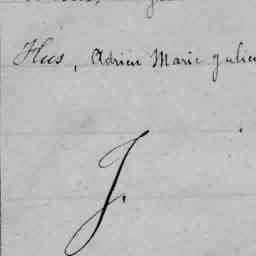 Hus, Adrien Marie Julien
J.